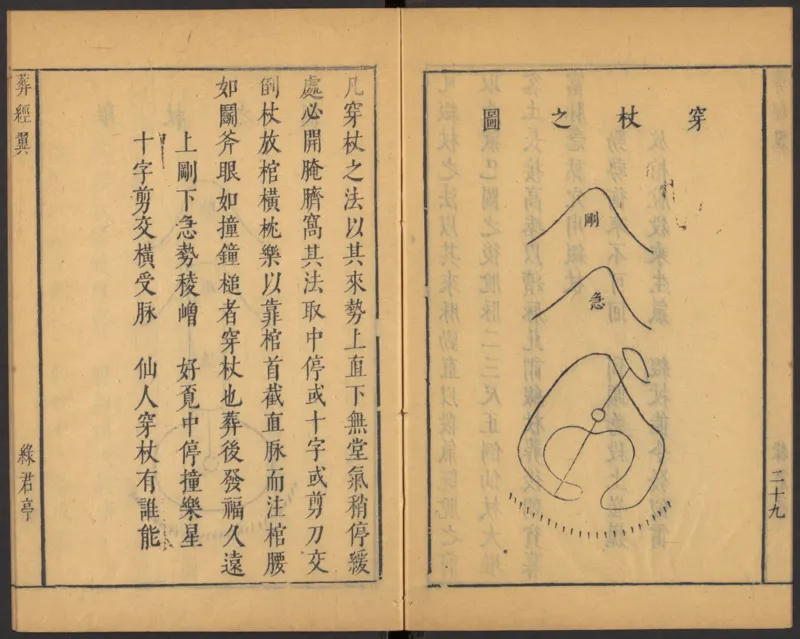 二十九
穿杖之圖
剛
急
凡穿杖之法以其來勢上直下無堂氣稍停緩
處必開腌臍窩其法取中停或十字或剪刀交
倒杖放棺橫桄樂以靠棺首截直脉而注棺腰
如鬭斧眼如撞鐘槌者穿杖也葬後發福久遠
上剛下急勢稜嶒 好覔中停撞樂星
十字剪交橫受脉 仙人穿杖有誰能
葬經翼
綠君亭